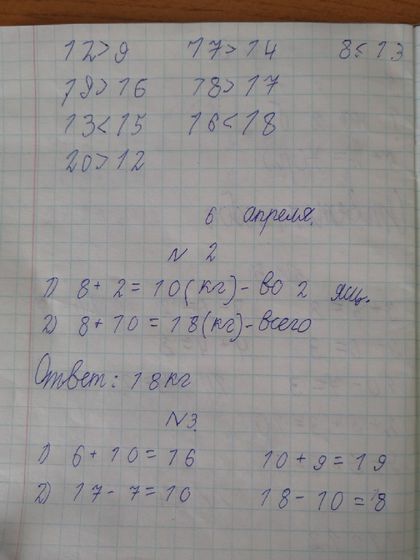 12>9 17>14 8<13
19>16 18>17
13<15 16<18
20>12
6 апреля.
N 2
1) 8+2=10(кг)-во 2 ящ.
2) 8+10=18(кг)-всего
Ответ: 18кг
N3.
1) 6+10=16 10+9=19
2) 17-7=10 18-10=8